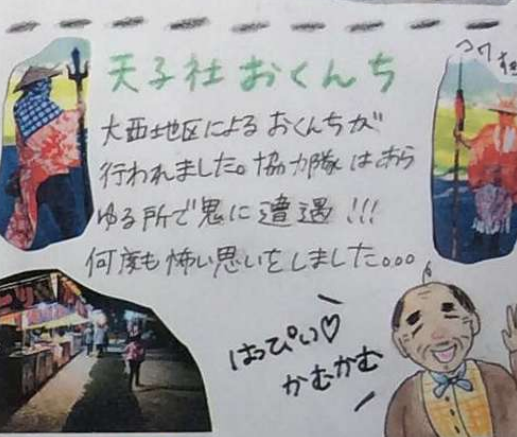 天子社おくんち
大西地区によるおくんちが
行われました。協力隊はあら
ゆる所で鬼に遭遇!!!
何度も怖い思いをしました。。。
はっぴい♡
かむかむ